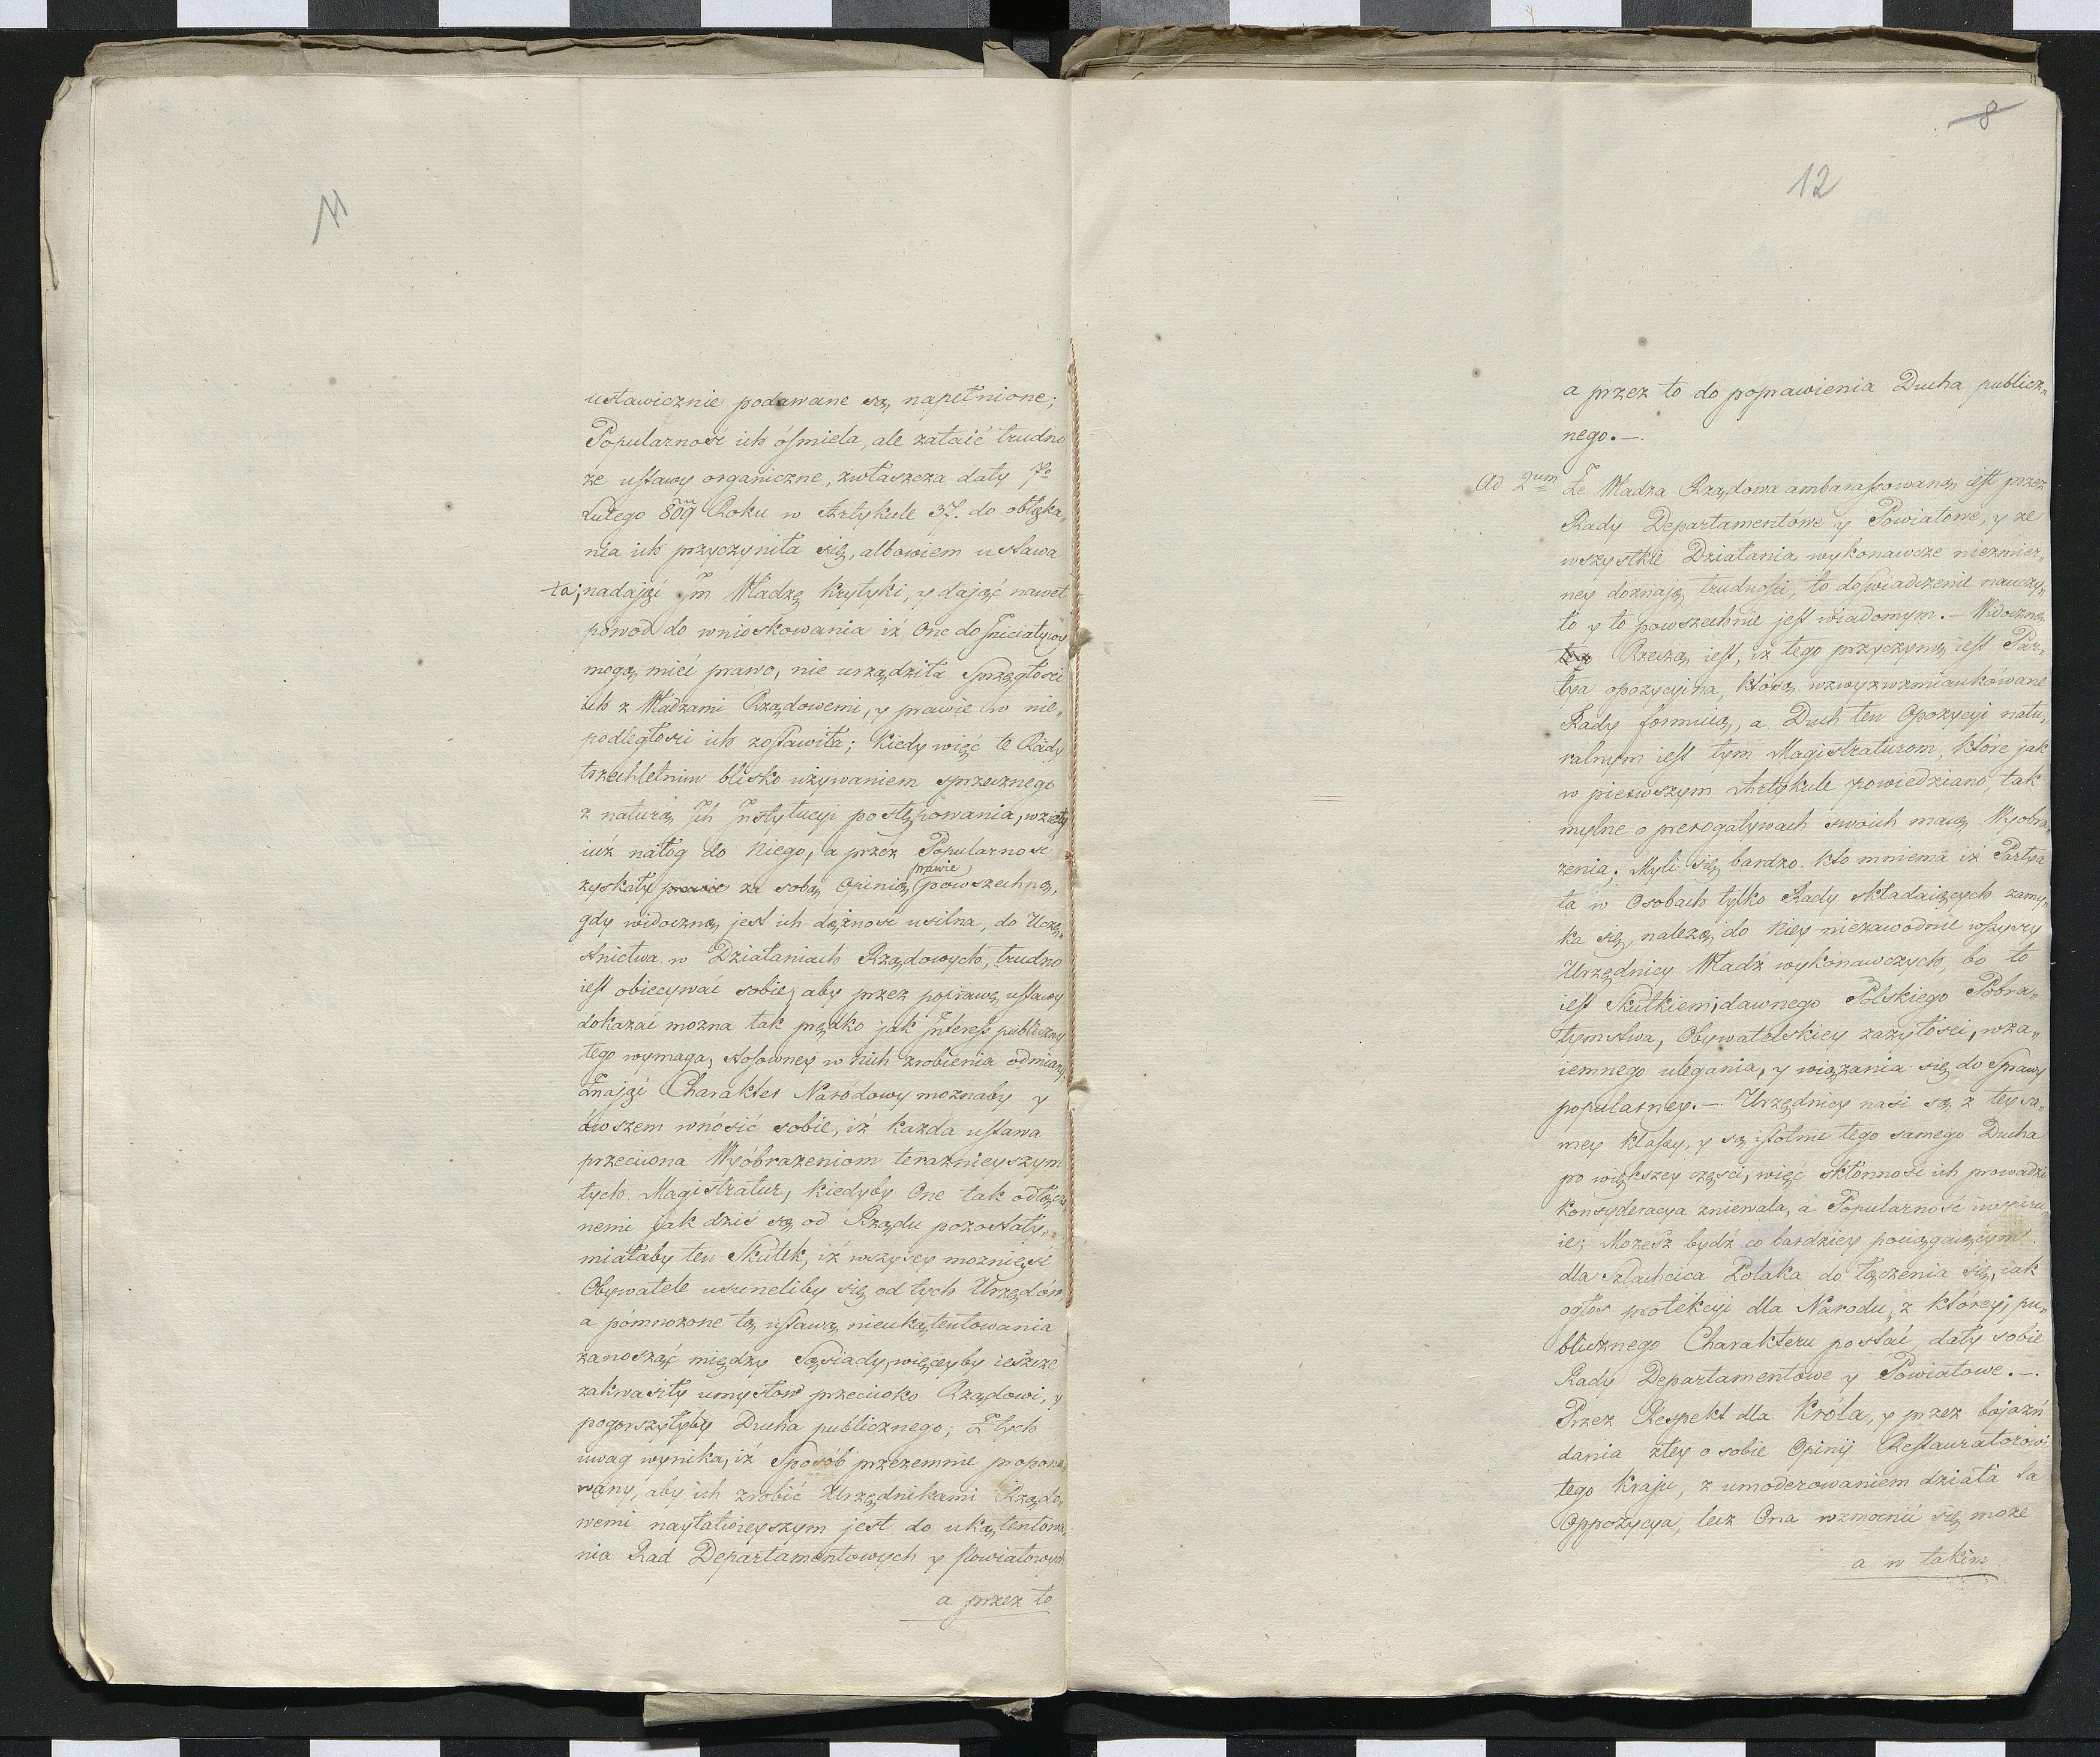 11
ustawicznie podawane są napełnione;
Popularność ich óśmiela, ale zataić trudno
że ustawy organiczne, zwłaszcza daty 7º
Lutego 809 Roku w Artykule 37. do obłąka„
nia ich przyczyniła się, albowiem ustawa
ta; nadając Im Władzę Krytyki, y dając nawet
powod do wnioskowania iż One do Jniciatywy
mogą mieć prawo, nie urządziła Sprzęgłości
ich z Władzami Rządowemi, y prawie w nie„
podległości ich zostawiła; Kiedy więc te Rady
trzechletnim blisko używaniem sprzecznego
z naturą Jch Jnstytucyi postępowania, wzięły
iuż nałog do Niego, a przez Popularność
prawie
zyskały prawie za sobą Opinią powszechną,
gdy widoczną jest ich dążność usilna, do Ucze„
stnictwa w Działaniach Rządowych, trudno
iest obiecywać sobie, aby przez poprawę ustawy
dokazać można tak prędko jak Jnteress publiczny
tego wymaga, stosowney w Nich zrobienia odmiany.
Znając Charakter Narodowy możnaby y
owszem wnosić sobie, iż każda ustawa
przeciwna Wyobrażeniom teraznieyszym
tych Magistratur, kiedyby One tak odłączo„
nemi jak dziś są od Rządu pozostały,
miałaby ten Skutek, iż wszyscy możnieysi
Obywatele usuneliby się od tych Urzędów,
a pomnożone tą ustawą nieukątentowania
zanosząc między Sąsiady, więceyby ieszcze
zakwasiły umysłow przeciwko Rządowi, y
pogorszyłyby Ducha publicznego; Z tych
uwag wynika, iż Sposób przezemnie propono„
wany, aby ich zrobić Urzędnikami Rządo„
wemi nayłatwieyszym jest do ukątentowa„
nia Rad Departamentowych y Powiatowych
a przez to
8
12
a przez to do poprawienia Ducha publicz„
nego.—
Ad 2um Że Władza Rządowa ambarassowaną iest przez
Rady Departamentowe y Powiatowe, y że
wszystkie Działania wykonawcze niezmier„
ney doznają trudności, to doswiadczenie nauczy„
ło y to powszechnie jest wiadomym.— Widoczną
Rzeczą iest, iż tego przyczyną iest Par„
tya opozycyina, którą wzwyżwzmiankówane
Rady formuią, a Duch ten Opozycyi natu„
ralnym iest tym Magistraturom, które jak
w pierwszym Artykule powiedziano, tak
mylne o prerogatywach swoich maią Wyobra„
żenia; Myli się bardzo kto mniema iż Partya
ta w Osobach tylko Rady składaiących zamy„
ka się, należą do Niey niezawodnie wszyscy
Urzędnicy Władz wykonawczych, bo to
iest Skutkiem dawnego Polskiego Pobra„
tymstwa, Obywatelskiey zażyłości, wza„
iemnego ulegania, y wiązania się do Sprawy
popularney.— Urzędnicy nasi są z tey sa„
mey klassy, y są istotnie tego samego Ducha
po większey części, więc skłonność ich prowadzi
konsyderacya zniewala, a Popularność inspiru„
ie; Możesz bydź co bardziey pociągaiącym
dla Szlachcica Polaka do łączenia się, iak
ogłos protekcyi dla Narodu, z którey pu„
blicznego Charakteru postać dały sobie
Rady Departamentowe y Powiatowe.—
Przez Respekt dla Króla, y przez bojaźń
dania złey o sobie Opinij Restauratorowi
tego Kraju, z umoderowaniem działa ta
Oppozycya, lecz Ona wzmocnić się może
a w takim